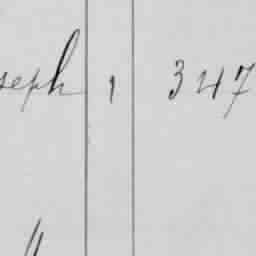 seph 1 347
"